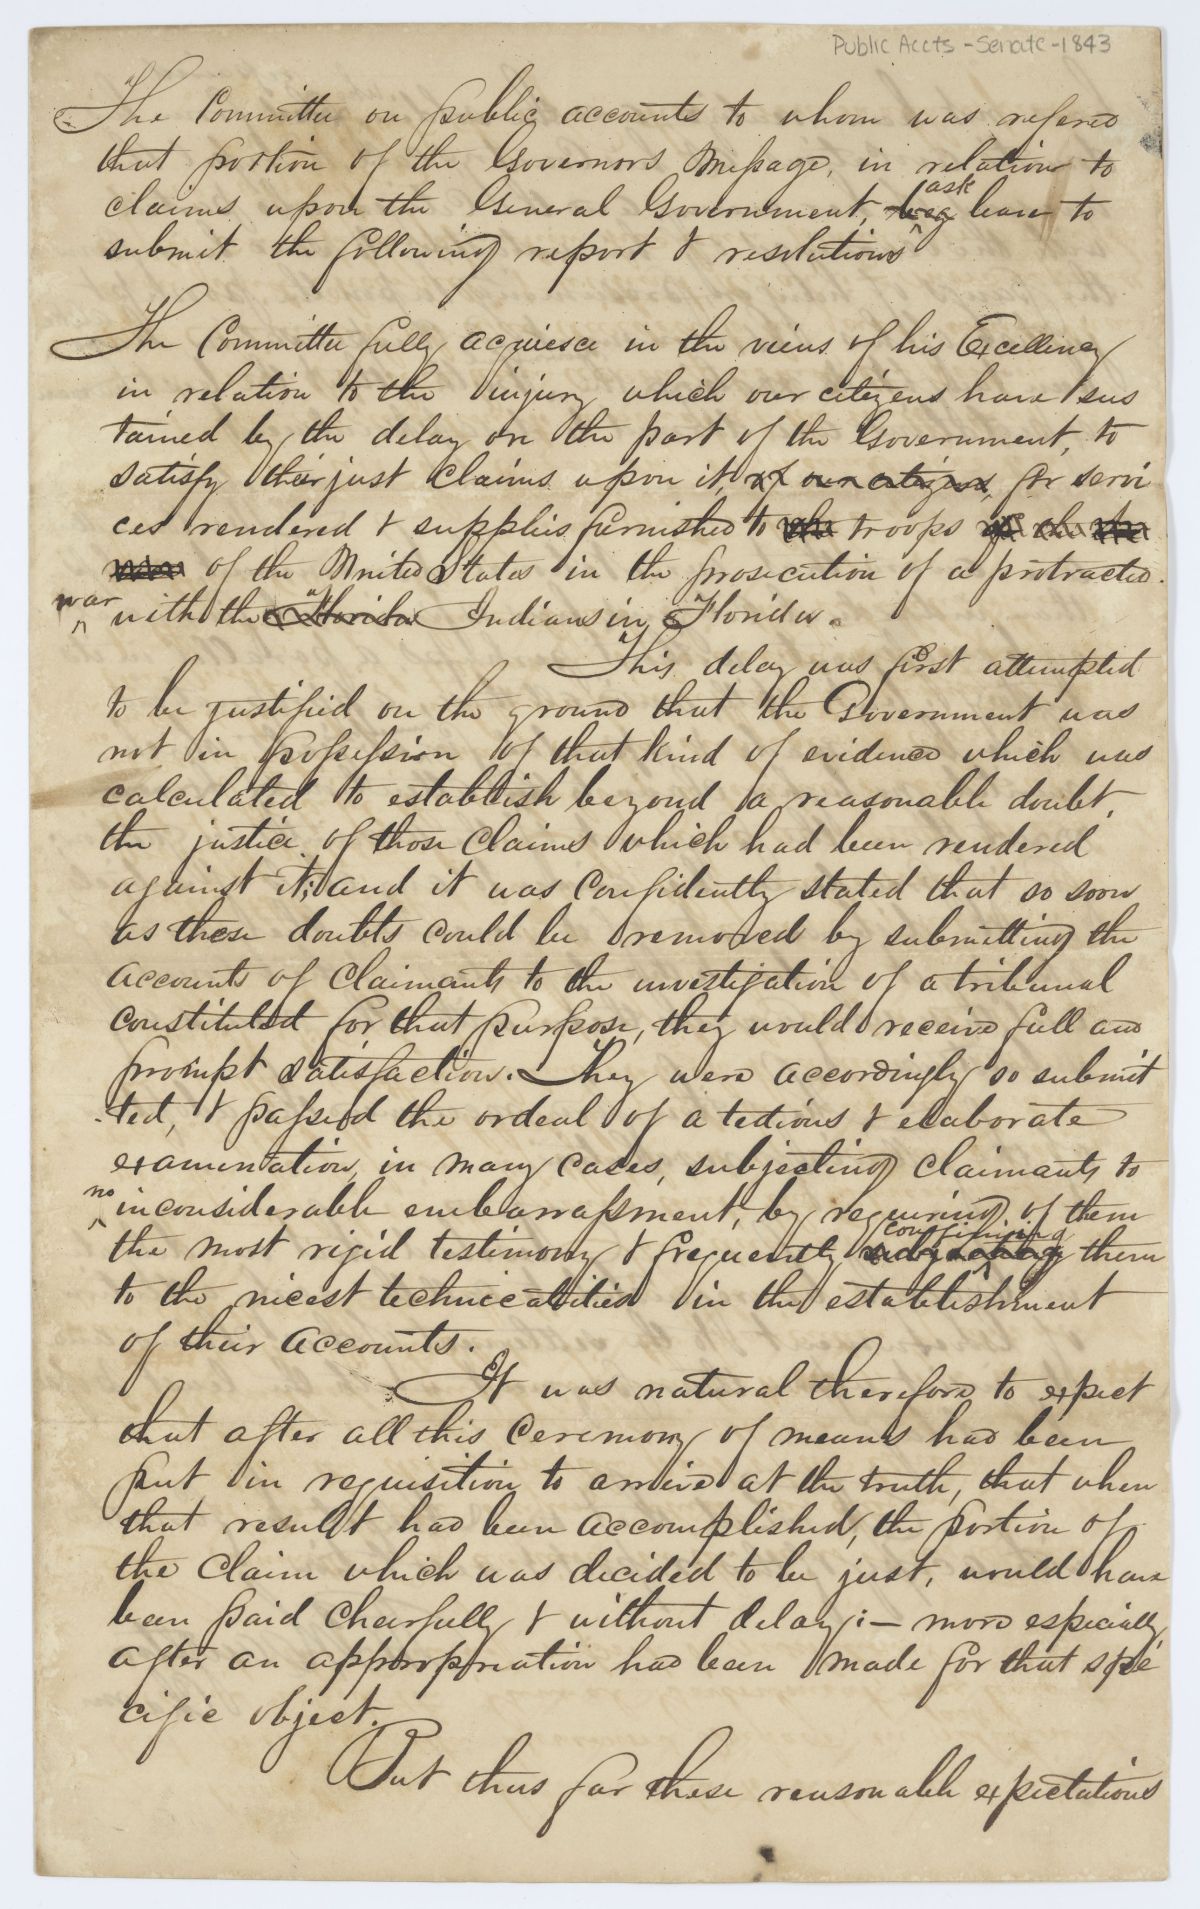 Public Accts - Senate - 1843
The Committee on public accounts to whom was refered
that portion of the Governors Message, in relation to
claims upon the General Government, beg ask leave to
submit the following report & resolutions
The Committee fully acquiesce in the views of his Excellency
in relation to the injury which our citizens have sus
tained by the delay on the part of the Government, to
satisfy their just claims upon it, of our citizens, for servi
ces rendered & supplies furnished to the troops
of the United States in the prosecution of a protracted
war with the Florida Indians in Florida.
This delay was first attempted
to be justified on the ground that the Government was
not in possession of that kind of evidence which was
calculated to establish beyond a reasonable doubt,
the justice of those claims which had been rendered
against it; and it was confidently stated that so soon
as these doubts could be removed by submitting the
accounts of claimants to the investigation of a tribunal
constituted for that purpose, they would receive full and
prompt satisfaction. They were accordingly so submit
ted, & passed the ordeal of a tedious & elaborate
examination, in many cases, subjecting claimants to
no inconsiderable embarrassment, by requiring of them
the most rigid testimony & frequently subjecting confining them
to the nicest technicalities in the establishment
of their accounts.
It was natural therefore to expect
that after all this ceremony of means had been
put in requisition to arrive at the truth, that when
that result had been accomplished, the portion of
the claim which was decided to be just, would have
been paid cheerfully & without delay; — more especially
after an appropriation had been made for that spe
cific object.
But thus far these reasonable expectations